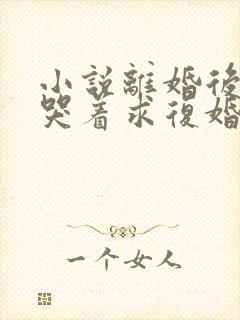 小說離婚後
哭着求復婚
一个女人